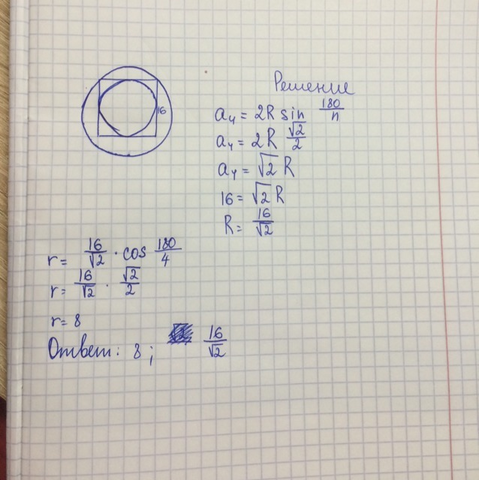 16
Решение
a₄ = 2R sin 180/n
a₄ = 2R √2/2
a₄ = √2 R
16 = √2 R
R = 16/√2
r = 16/√2 · cos 180/4
r = 16/√2 · √2/2
r = 8
Ответ: 8; 16/√2